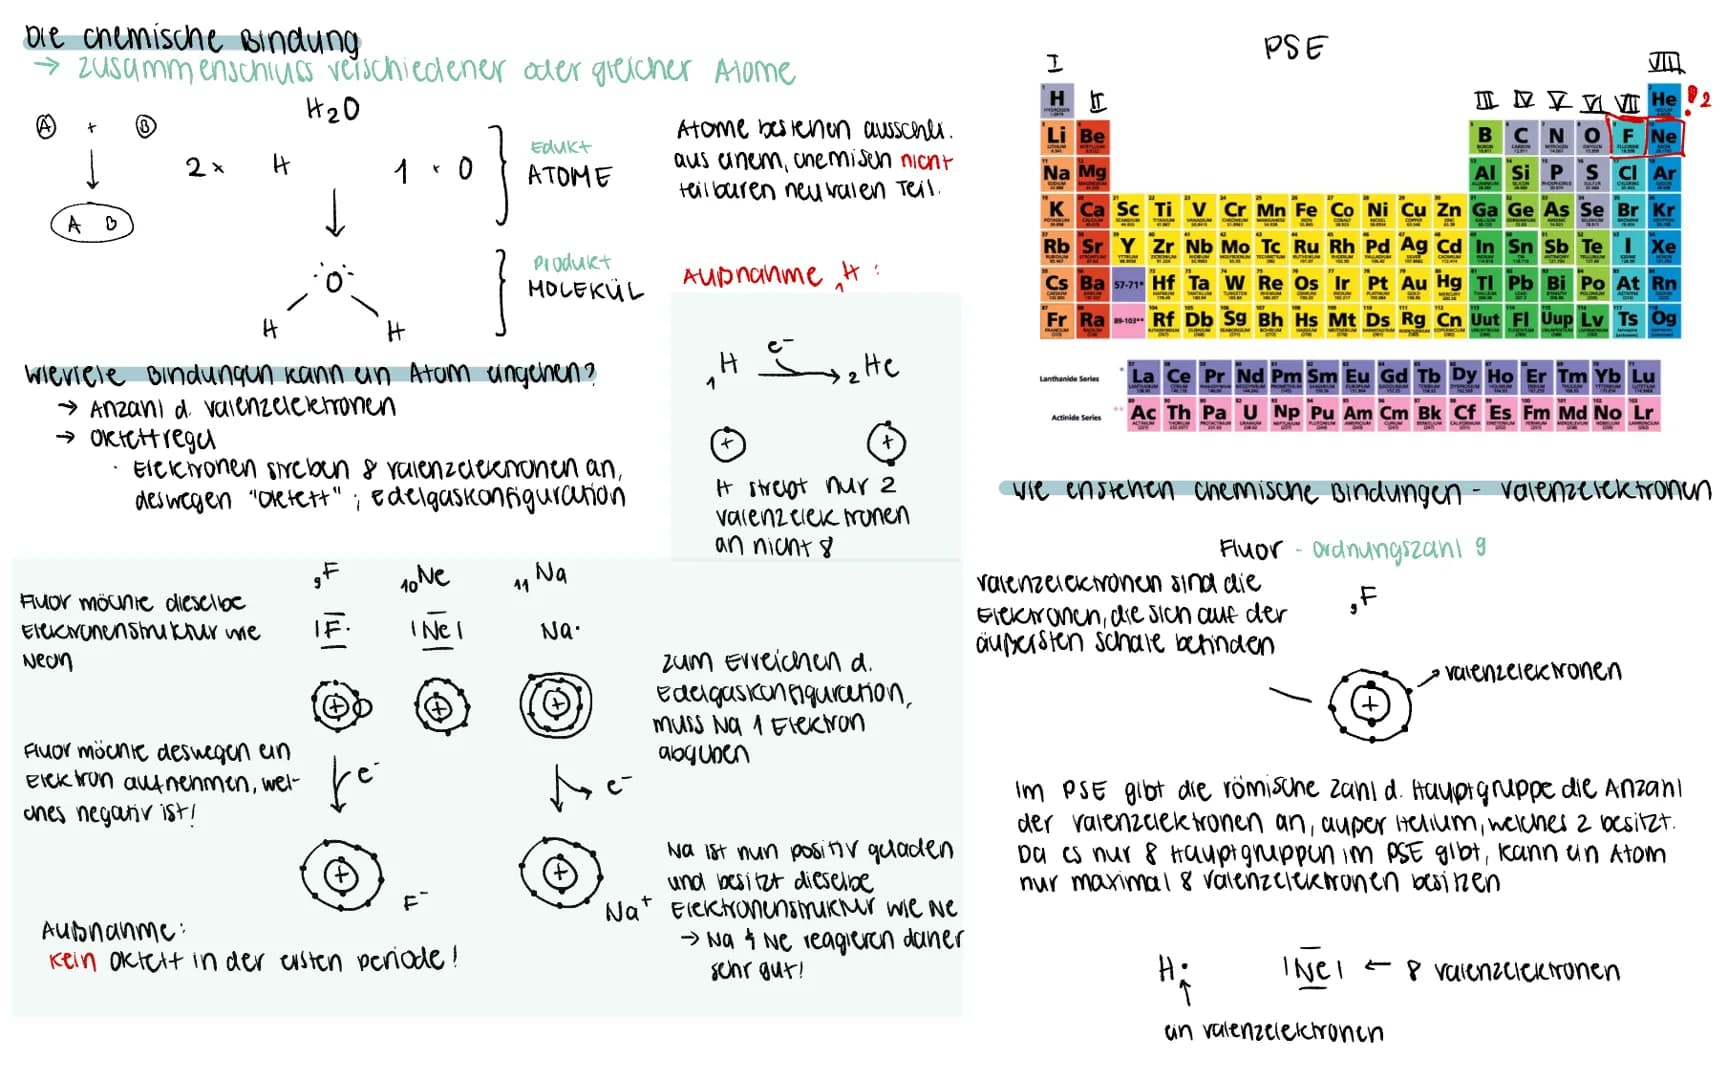 Die chemische Bindung
→ Zusammenschluss verschiedener oder gleicher Atome
A + B
A B
H2O
2x H 1 · O
Edukt
ATOME
O
H H
Produkt
MOLEKÜL
Atome bestehen ausschli.
aus einem, chemisch nicht
teilbaren neutralen Teil.
Außnahme 1H :
1H e- → 2He
+ +
H strebt nur 2
Valenzelektronen
an nicht 8
Wieviele Bindungen kann ein Atom eingehen?
→ Anzahl d. Valenzelektronen
→ Oktettregel
· Elektronen streben 8 Valenzelektronen an,
deswegen "Oktett" ; Edelgaskonfiguration
9F 10Ne 11Na
Fluor möchte dieselbe
Elektronenstruktur wie
Neon
|F· |Ne| Na·
+ + +
Fluor möchte deswegen ein
Elektron aufnehmen, wel-
ches negativ ist!
e- e-
+ +
F- Na+
Außnahme:
Kein Oktett in der ersten Periode!
zum Erreichen d.
Edelgaskonfiguration,
muss Na 1 Elektron
abgeben
Na ist nun positiv geladen
und besitzt dieselbe
Elektronenstruktur wie Ne
→ Na & Ne reagieren daher
sehr gut!
PSE
I II III IV V VI VII VIII
H He !2
Li Be B C N O F Ne
Na Mg Al Si P S Cl Ar
K Ca Sc Ti V Cr Mn Fe Co Ni Cu Zn Ga Ge As Se Br Kr
Rb Sr Y Zr Nb Mo Tc Ru Rh Pd Ag Cd In Sn Sb Te I Xe
Cs Ba 57-71* Hf Ta W Re Os Ir Pt Au Hg Tl Pb Bi Po At Rn
Fr Ra 89-103** Rf Db Sg Bh Hs Mt Ds Rg Cn Uut Fl Uup Lv Ts Og
Lanthanide Series * La Ce Pr Nd Pm Sm Eu Gd Tb Dy Ho Er Tm Yb Lu
Actinide Series ** Ac Th Pa U Np Pu Am Cm Bk Cf Es Fm Md No Lr
Wie enstehen chemische Bindungen - Valenzelektronen
Fluor - Ordnungszahl 9
Valenzelektronen sind die
Elektronen, die sich auf der
äußersten Schale befinden
9F
+
Valenzelektronen
Im PSE gibt die römische Zahl d. Hauptgruppe die Anzahl
der Valenzelektronen an, außer Helium, welches 2 besitzt.
Da es nur 8 Hauptgruppen im PSE gibt, kann ein Atom
nur maximal 8 Valenzelektronen besitzen
H· |Ne| ← 8 Valenzelektronen
ein Valenzelektronen